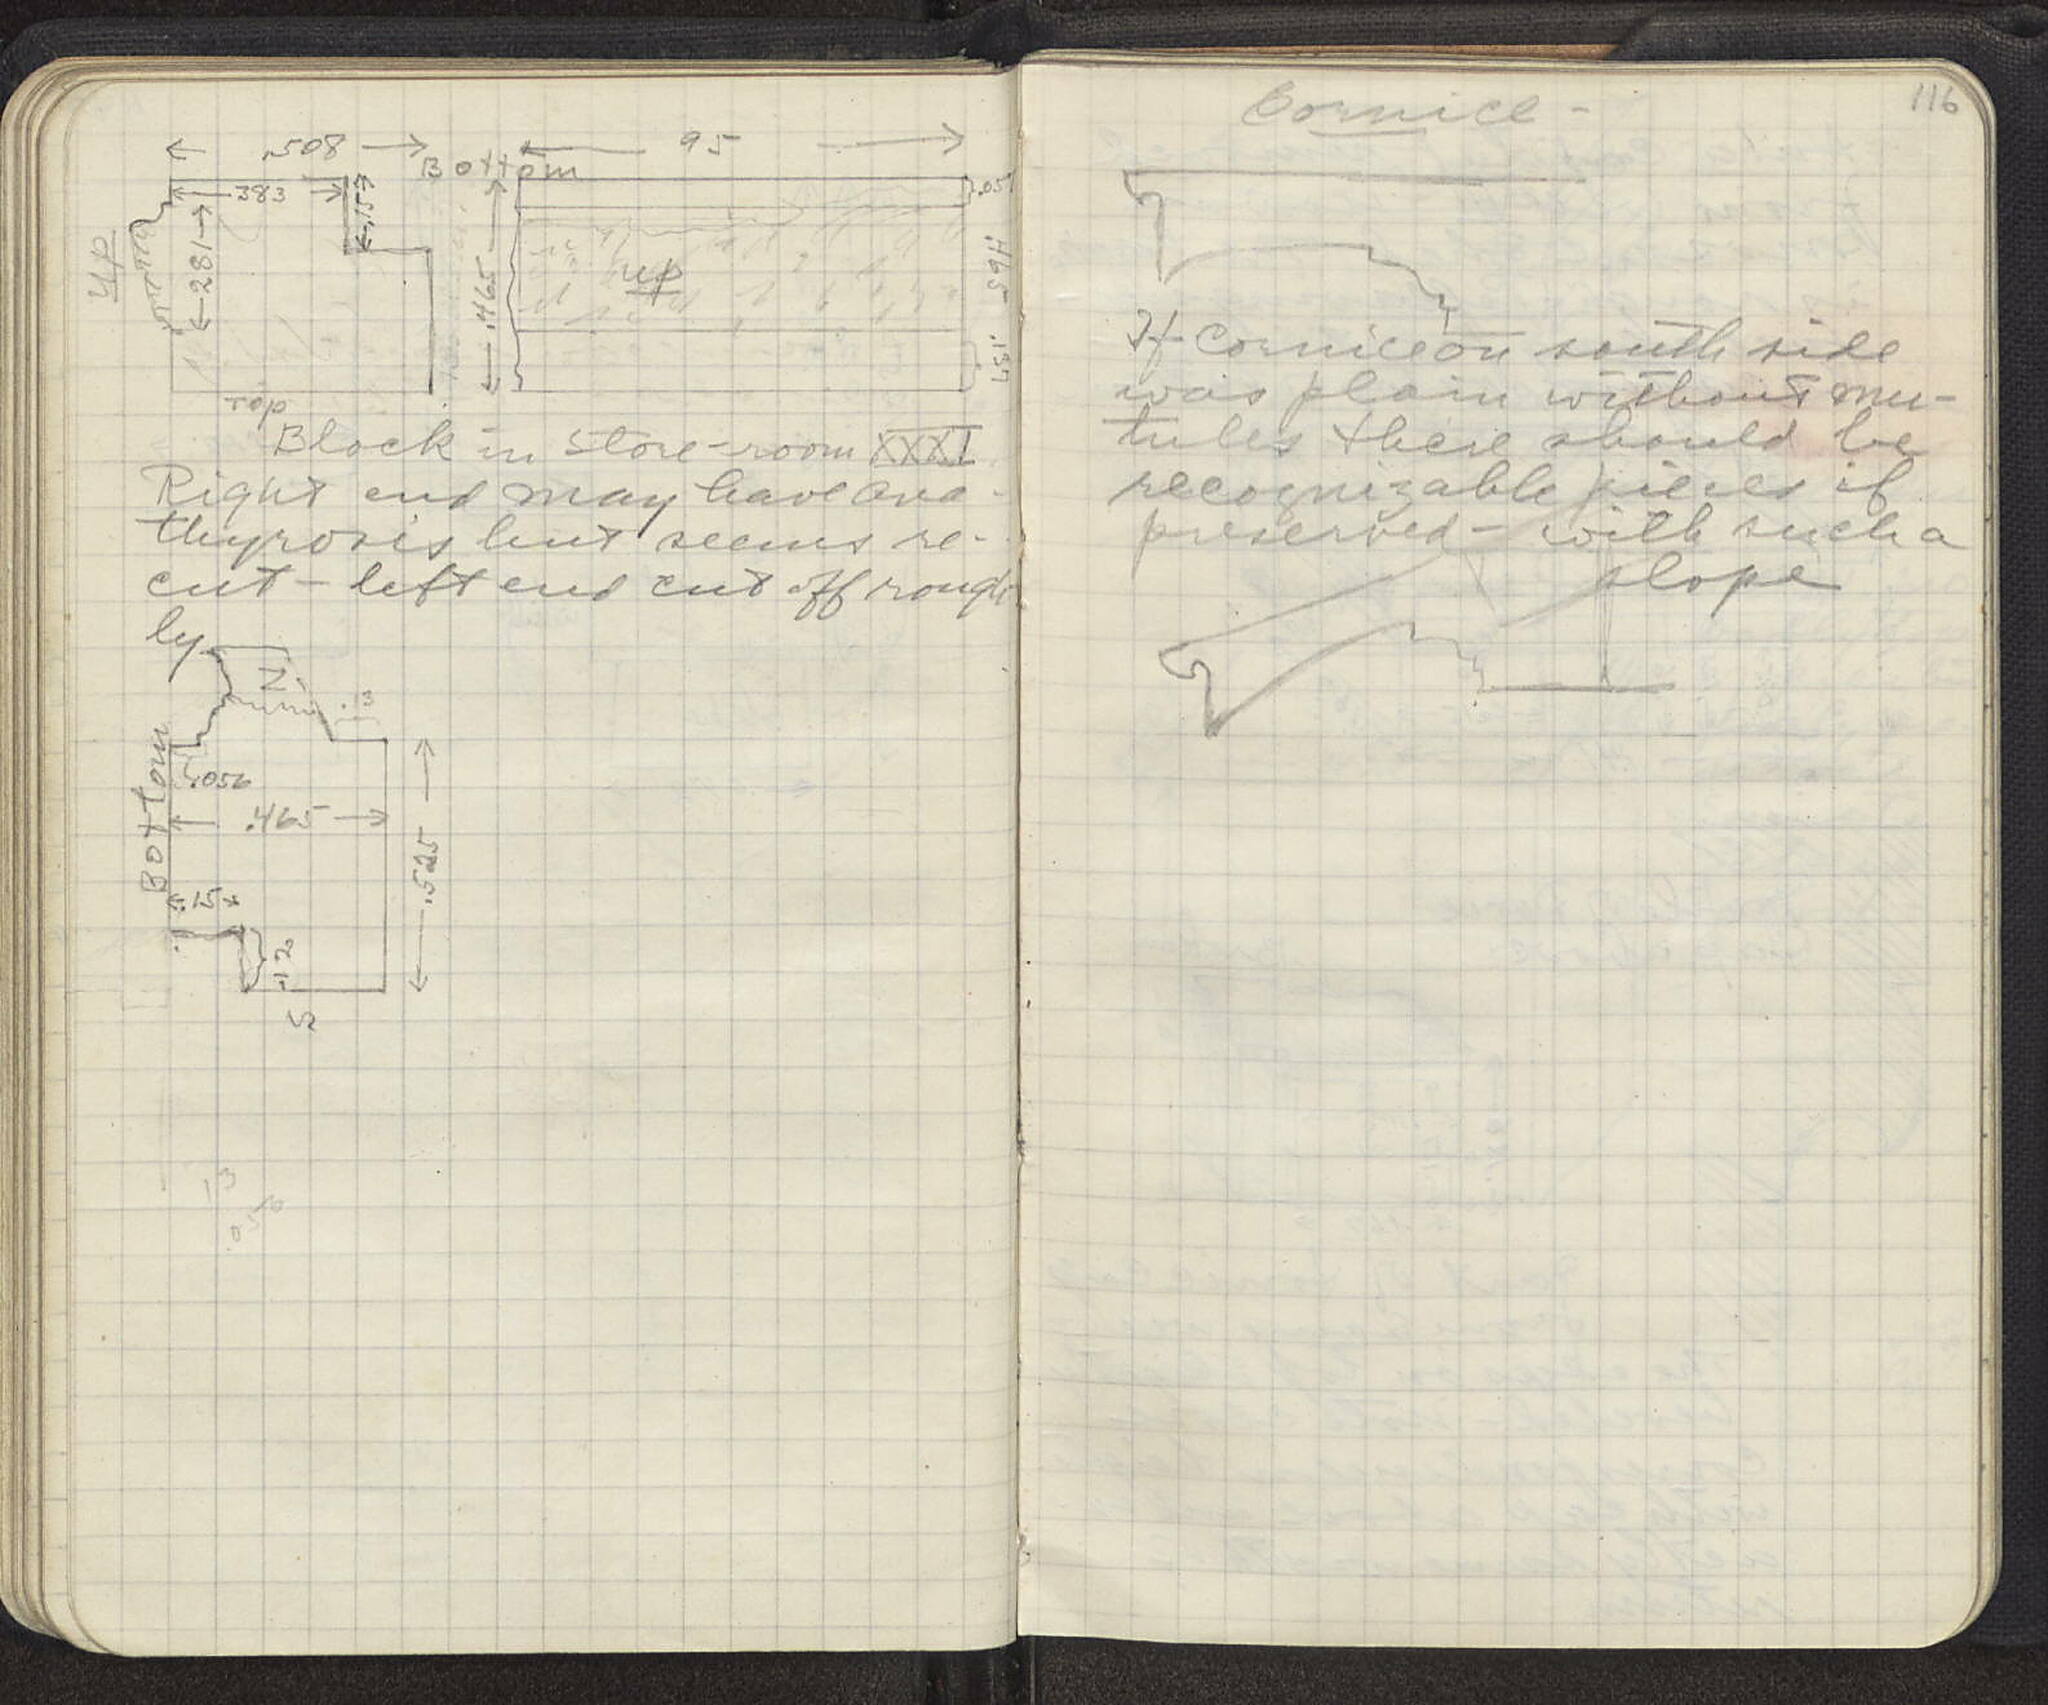 .508
Bottom
95
.383
.15
.05
up
.281
.465
up
.465
.131
Top
Block in store-room XXXI
Right end may have ana-
thyrosis but seems re-
cut - left end cut off rough
ly
N.
.13
Bottom
.056
.465
.525
.15+
.12
S
13
.056
116
Cornice -
If cornice on south side
was plain without mu-
tules there should be
recognizable pieces if
preserved - with such a
slope